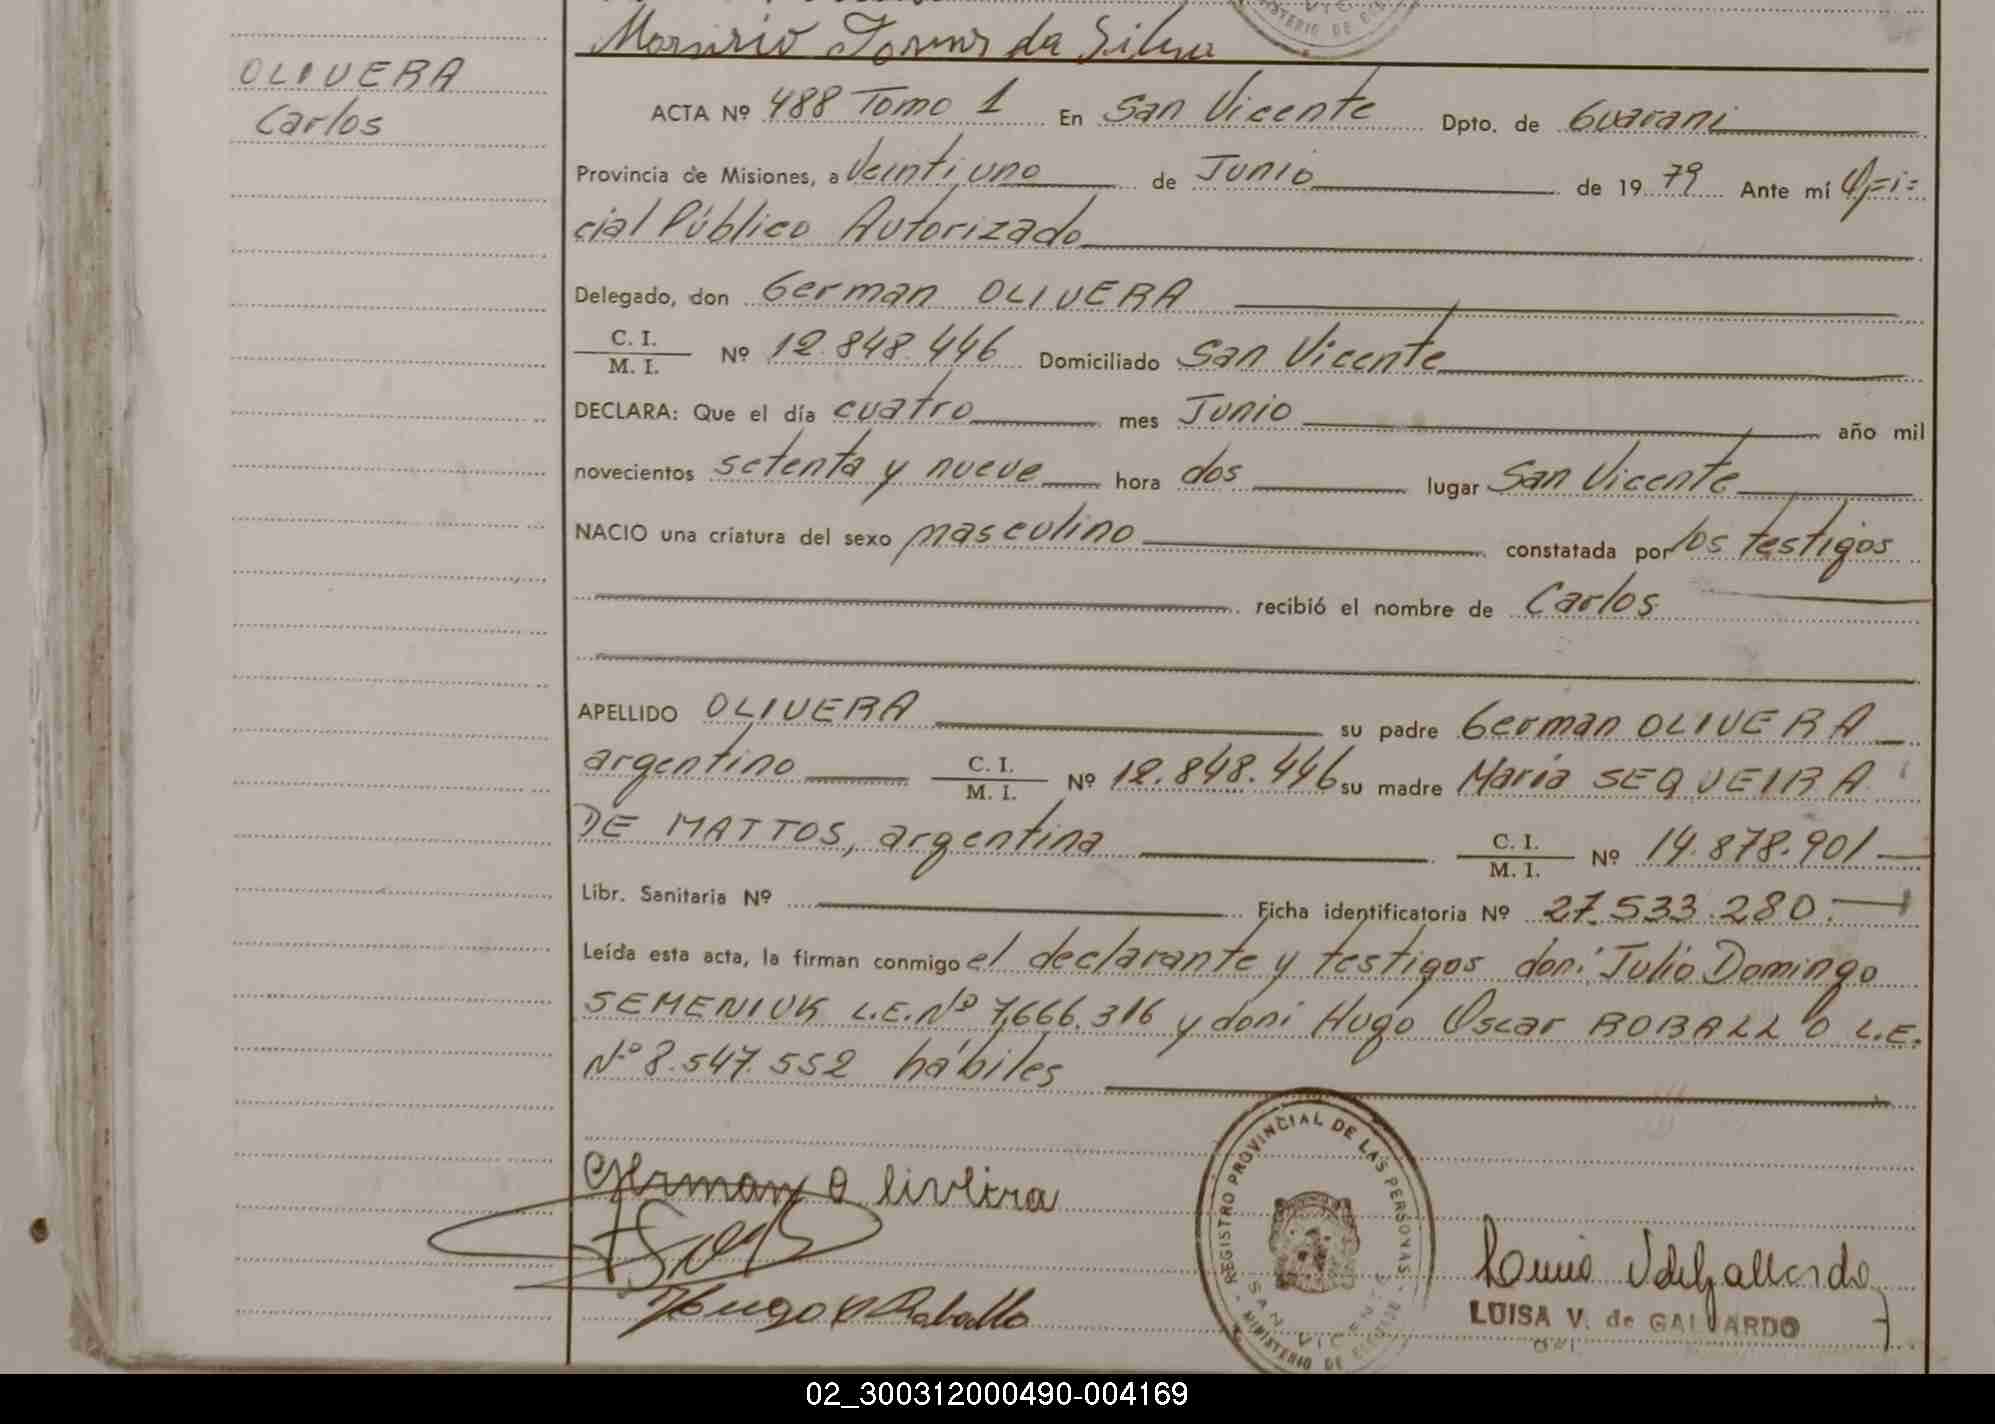 da Silva
OLIVERA
Carlos
ACTA Nº 488 Tomo 1 En San Vicente Dpto. de Guarani
Provincia de Misiones, a Veintiuno de Junio de 1979 Ante mí Ofi=
cial Público Autorizado
Delegado, don German OLIVERA
C. I.
M. I. Nº 12.848.446 Domiciliado San Vicente
DECLARA: Que el día cuatro mes Junio año mil
novecientos setenta y nueve hora dos lugar San Vicente
NACIO una criatura del sexo masculino constatada por los testigos
recibió el nombre de Carlos
APELLIDO OLIVERA su padre German OLIVERA
argentino C. I. M. I. Nº 12.848.446 su madre María SEQUEIRA
DE MATTOS, argentina C. I. M. I. Nº 14.878.901
Libr. Sanitaria Nº Ficha identificatoria Nº 27.533.280.
Leída esta acta, la firman conmigo el declarante y testigos don: Julio Domingo
SEMENIUK L.E. Nº 7.666.316 y don: Hugo Oscar ROBALLO L.E.
Nº 8.547.552 hábiles
German Oliveira
Hugo O Roballo
REGISTRO PROVINCIAL DE LAS PERSONAS
SAN VICENTE
MINISTERIO DE
LUISA V. de GALLARDO
02_300312000490-004169